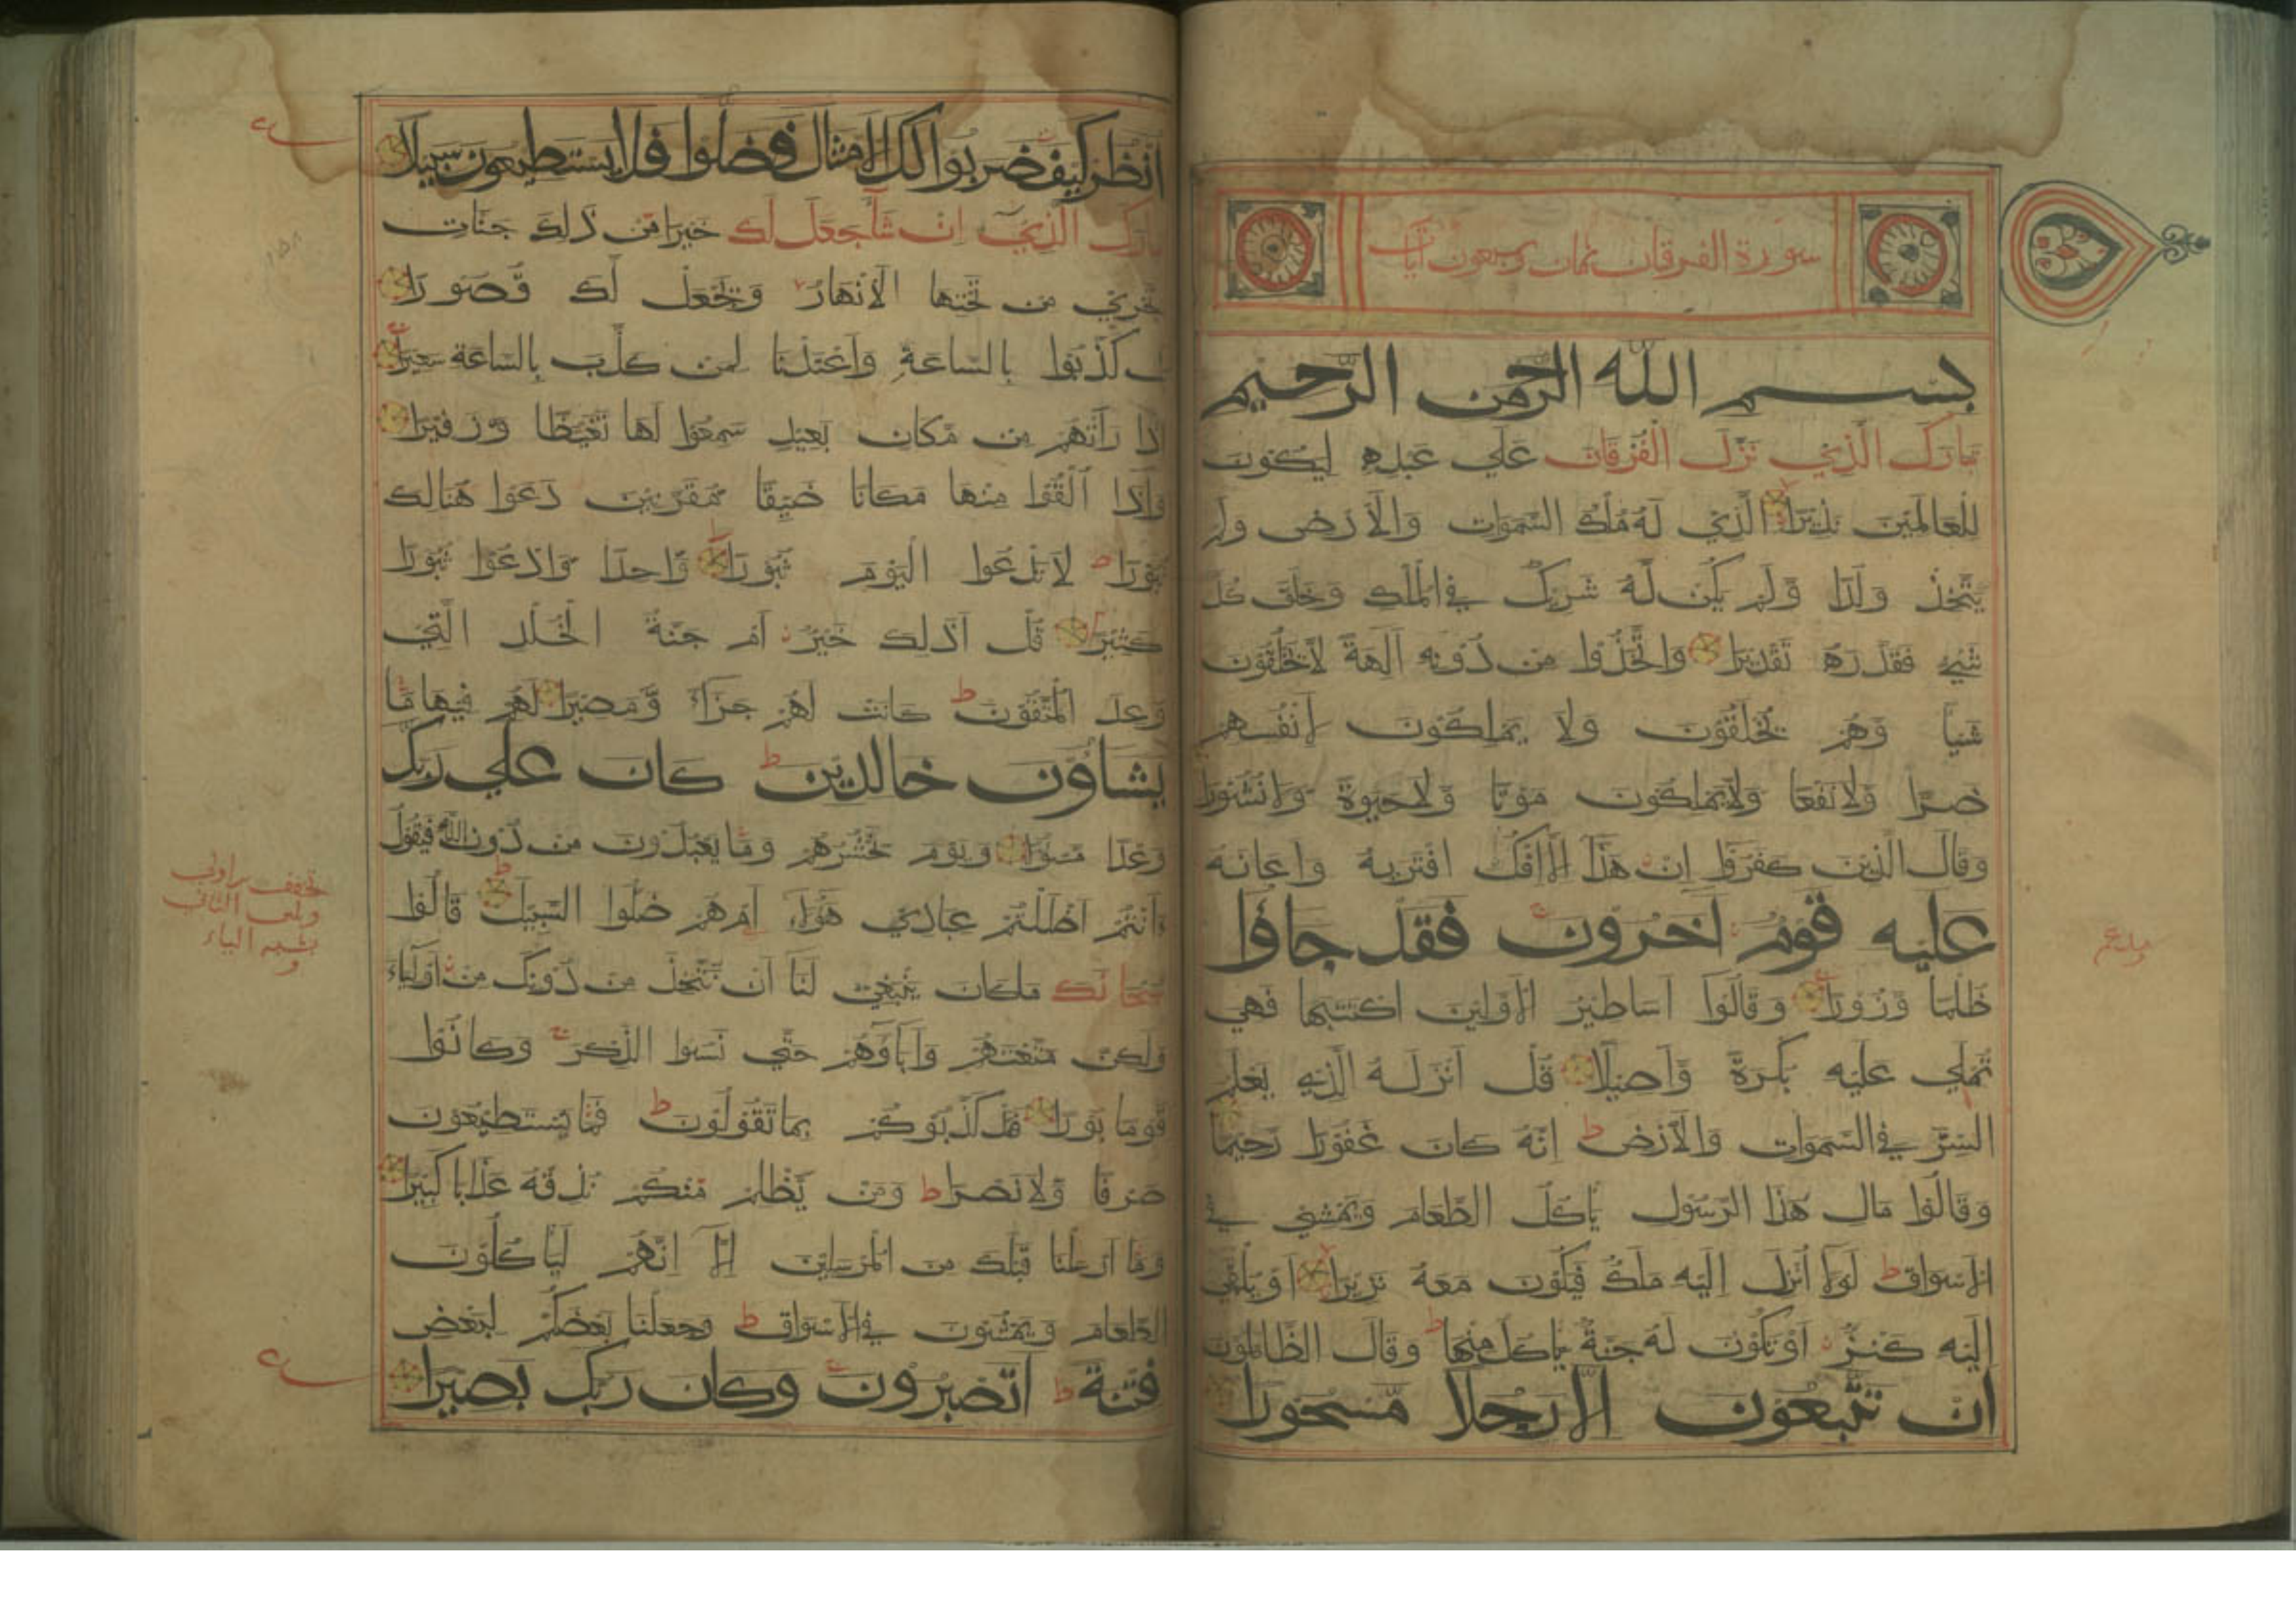 سورة الفرقان ثمان وسبعون آيات
بسم الله الرحمن الرحيم
تبارك الذي نزل الفرقان علي عبده ليكون
للعالمين نذيرا الذي له ملك السموات والارض ولم
يتخذ ولدا ولم يكن له شريك في الملك وخلق كل
شيء فقدره تقديرا واتخذوا من دونه آلهة لا يخلقون
شيأ وهم يخلقون ولا يملكون لانفسهم
ضرا ولا نفعا ولا يملكون موتا ولا حيوة ولا نشورا
وقال الذين كفروا ان هذا الا افك افتريه واعانه
عليه قوم آخرون فقد جاؤا
ظلما وزورا وقالوا اساطير الاولين اكتتبها فهي
تملي عليه بكرة واصيلا قل انزله الذي يعلم
السر في السموات والارض انه كان غفورا رحيما
وقالوا مال هذا الرسول ياكل الطعام ويمشي في
الاسواق لولا انزل اليه ملك فيكون معه نذيرا او يلقي
اليه كنز او تكون له جنة ياكل منها وقال الظالمون
ان تتبعون الا رجلا مسحورا
انظر كيف ضربوا لك الامثال فضلوا فلا يستطيعون سبيلا
تبارك الذي ان شآ جعل لك خيرا من ذلك جنات
تجري من تحتها الانهار ويجعل لك قصورا
بل كذبوا بالساعة واعتدنا لمن كذب بالساعة سعيرا
اذا رأتهم من مكان بعيد سمعوا لها تغيظا وزفيرا
واذا القوا منها مكانا ضيقا مقرنين دعوا هنالك
ثبورا لا تدعوا اليوم ثبورا واحدا وادعوا ثبورا
كثيرا قل اذلك خير ام جنة الخلد التي
وعد المتقون كانت لهم جزاء ومصيرا لهم فيها ما
يشاؤن خالدين كان علي ربك
وعدا مسؤلا ويوم نحشرهم وما يعبدون من دون الله فيقول
ءانتم اضللتم عبادي هؤلاء ام هم ضلوا السبيل قالوا
سبحانك ماكان ينبغي لنا ان نتخذ من دونك من اولياء
ولكن متعتهم وآباؤهم حتي نسوا الذكر وكانوا
قوما بورا فقد كذبوكم بما تقولون فما يستطيعون
صرفا ولا نصرا ومن يظلم منكم نذقه عذابا كبيرا
وما ارسلنا قبلك من المرسلين الا انهم لياكلون
الطعام ويمشون في الاسواق وجعلنا بعضكم لبعض
فتنة اتصبرون وكان ربك بصيرا